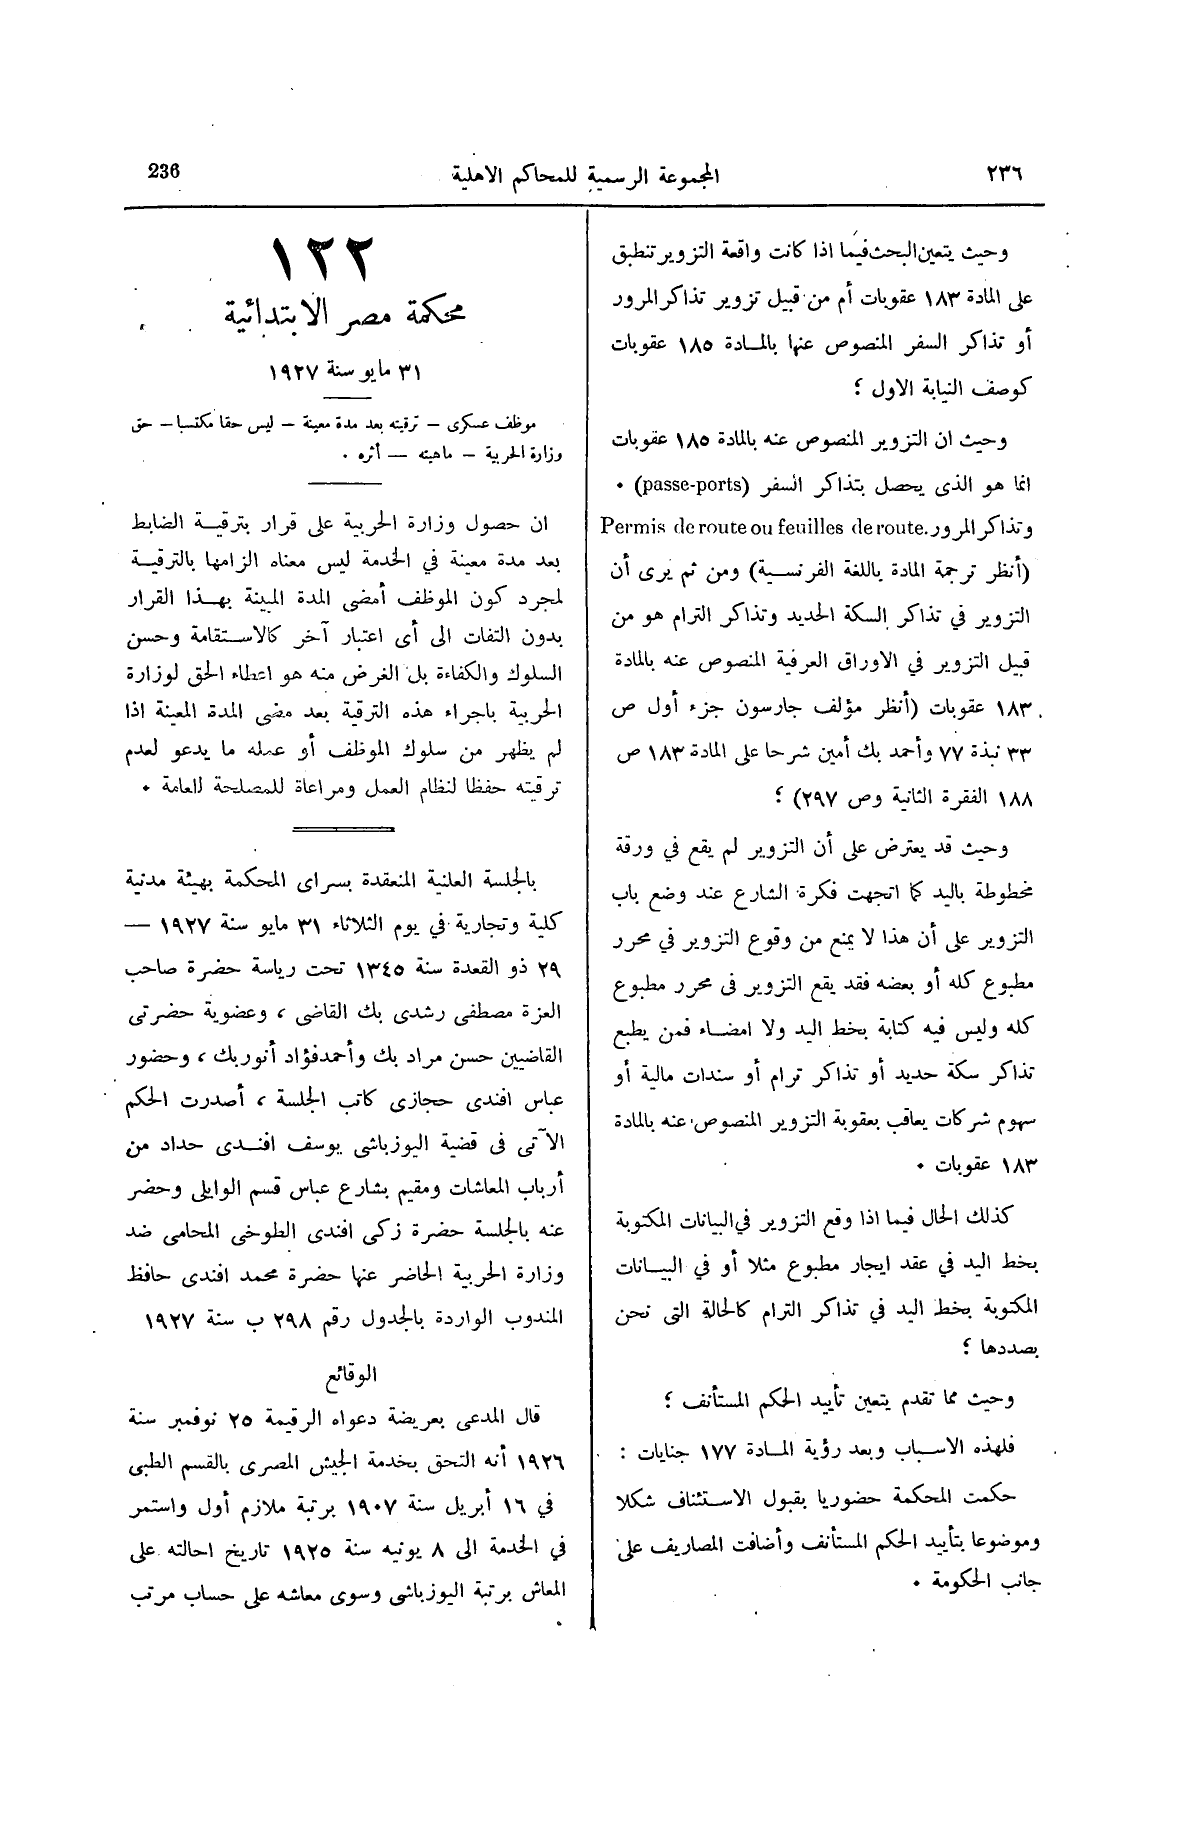 ٢٣٦ المجموعة الرسمية للمحاكم الاهلية 236
وحيث يتعين البحث فيما اذا كانت واقعة التزوير تنطبق
على المادة ١٨٣ عقوبات أم من قبيل تزوير تذاكر المرور
أو تذاكر السفر المنصوص عنها بالمادة ١٨٥ عقوبات
كوصف النيابة الاول ؛
وحيث ان التزوير المنصوص عنه بالمادة ١٨٥ عقوبات
انما هو الذى يحصل بتذاكر السفر (passe-ports) ٠
وتذاكر المرور .Permis de route ou feuilles de route
(أنظر ترجمة المادة باللغة الفرنسية) ومن ثم يرى أن
التزوير في تذاكر السكة الحديد وتذاكر الترام هو من
قبيل التزوير في الاوراق العرفية المنصوص عنه بالمادة
١٨٣ عقوبات (أنظر مؤلف جارسون جزء أول ص
٣٣ نبذة ٧٧ وأحمد بك أمين شرحا على المادة ١٨٣ ص
١٨٨ الفقرة الثانية وص ٢٩٧) ؛
وحيث قد يعترض على أن التزوير لم يقع في ورقة
مخطوطة باليد كما اتجهت فكرة الشارع عند وضع باب
التزوير على أن هذا لا يمنع من وقوع التزوير في محرر
مطبوع كله أو بعضه فقد يقع التزوير فى محرر مطبوع
كله وليس فيه كتابة بخط اليد ولا امضاء فمن يطبع
تذاكر سكة حديد أو تذاكر ترام أو سندات مالية أو
سهوم شركات يعاقب بعقوبة التزوير المنصوص عنه بالمادة
١٨٣ عقوبات ٠
كذلك الحال فيما اذا وقع التزوير في البيانات المكتوبة
بخط اليد في عقد ايجار مطبوع مثلا أو في البيانات
المكتوبة بخط اليد في تذاكر الترام كالحالة التى نحن
بصددها ؛
وحيث مما تقدم يتعين تأييد الحكم المستأنف ؛
فلهذه الاسباب وبعد رؤية المادة ١٧٧ جنايات :
حكمت المحكمة حضوريا بقبول الاستئناف شكلا
وموضوعا بتأييد الحكم المستأنف وأضافت المصاريف على
جانب الحكومة ٠
١٢٢
محكمة مصر الابتدائية
٣١ مايو سنة ١٩٢٧
موظف عسكرى – ترقيته بعد مدة معينة – ليس حقا مكتسبا – حق
وزارة الحربية – ماهيته — أثره ٠
ان حصول وزارة الحربية على قرار بترقية الضابط
بعد مدة معينة في الخدمة ليس معناه الزامها بالترقية
لمجرد كون الموظف أمضى المدة المبينة بهذا القرار
بدون التفات الى أى اعتبار آخر كالاستقامة وحسن
السلوك والكفاءة بل الغرض منه هو اعطاء الحق لوزارة
الحربية باجراء هذه الترقية بعد مضى المدة المعينة اذا
لم يظهر من سلوك الموظف أو عمله ما يدعو لعدم
ترقيته حفظا لنظام العمل ومراعاة للمصلحة العامة ٠
بالجلسة العلنية المنعقدة بسراى المحكمة بهيئة مدنية
كلية وتجارية في يوم الثلاثاء ٣١ مايو سنة ١٩٢٧ —
٢٩ ذو القعدة سنة ١٣٤٥ تحت رياسة حضرة صاحب
العزة مصطفى رشدى بك القاضى ، وعضوية حضرتى
القاضيين حسن مراد بك وأحمد فؤاد أنور بك ، وحضور
عباس افندى حجازى كاتب الجلسة ، أصدرت الحكم
الآتى فى قضية اليوزباشى يوسف افندى حداد من
أرباب المعاشات ومقيم بشارع عباس قسم الوايلى وحضر
عنه بالجلسة حضرة زكى افندى الطوخى المحامى ضد
وزارة الحربية الحاضر عنها حضرة محمد افندى حافظ
المندوب الواردة بالجدول رقم ٢٩٨ ب سنة ١٩٢٧
الوقائع
قال المدعى بعريضة دعواه الرقيمة ٢٥ نوفمبر سنة
١٩٢٦ أنه التحق بخدمة الجيش المصرى بالقسم الطبى
في ١٦ أبريل سنة ١٩٠٧ برتبة ملازم أول واستمر
في الخدمة الى ٨ يونيه سنة ١٩٢٥ تاريخ احالته على
المعاش برتبة اليوزباشى وسوى معاشه على حساب مرتب